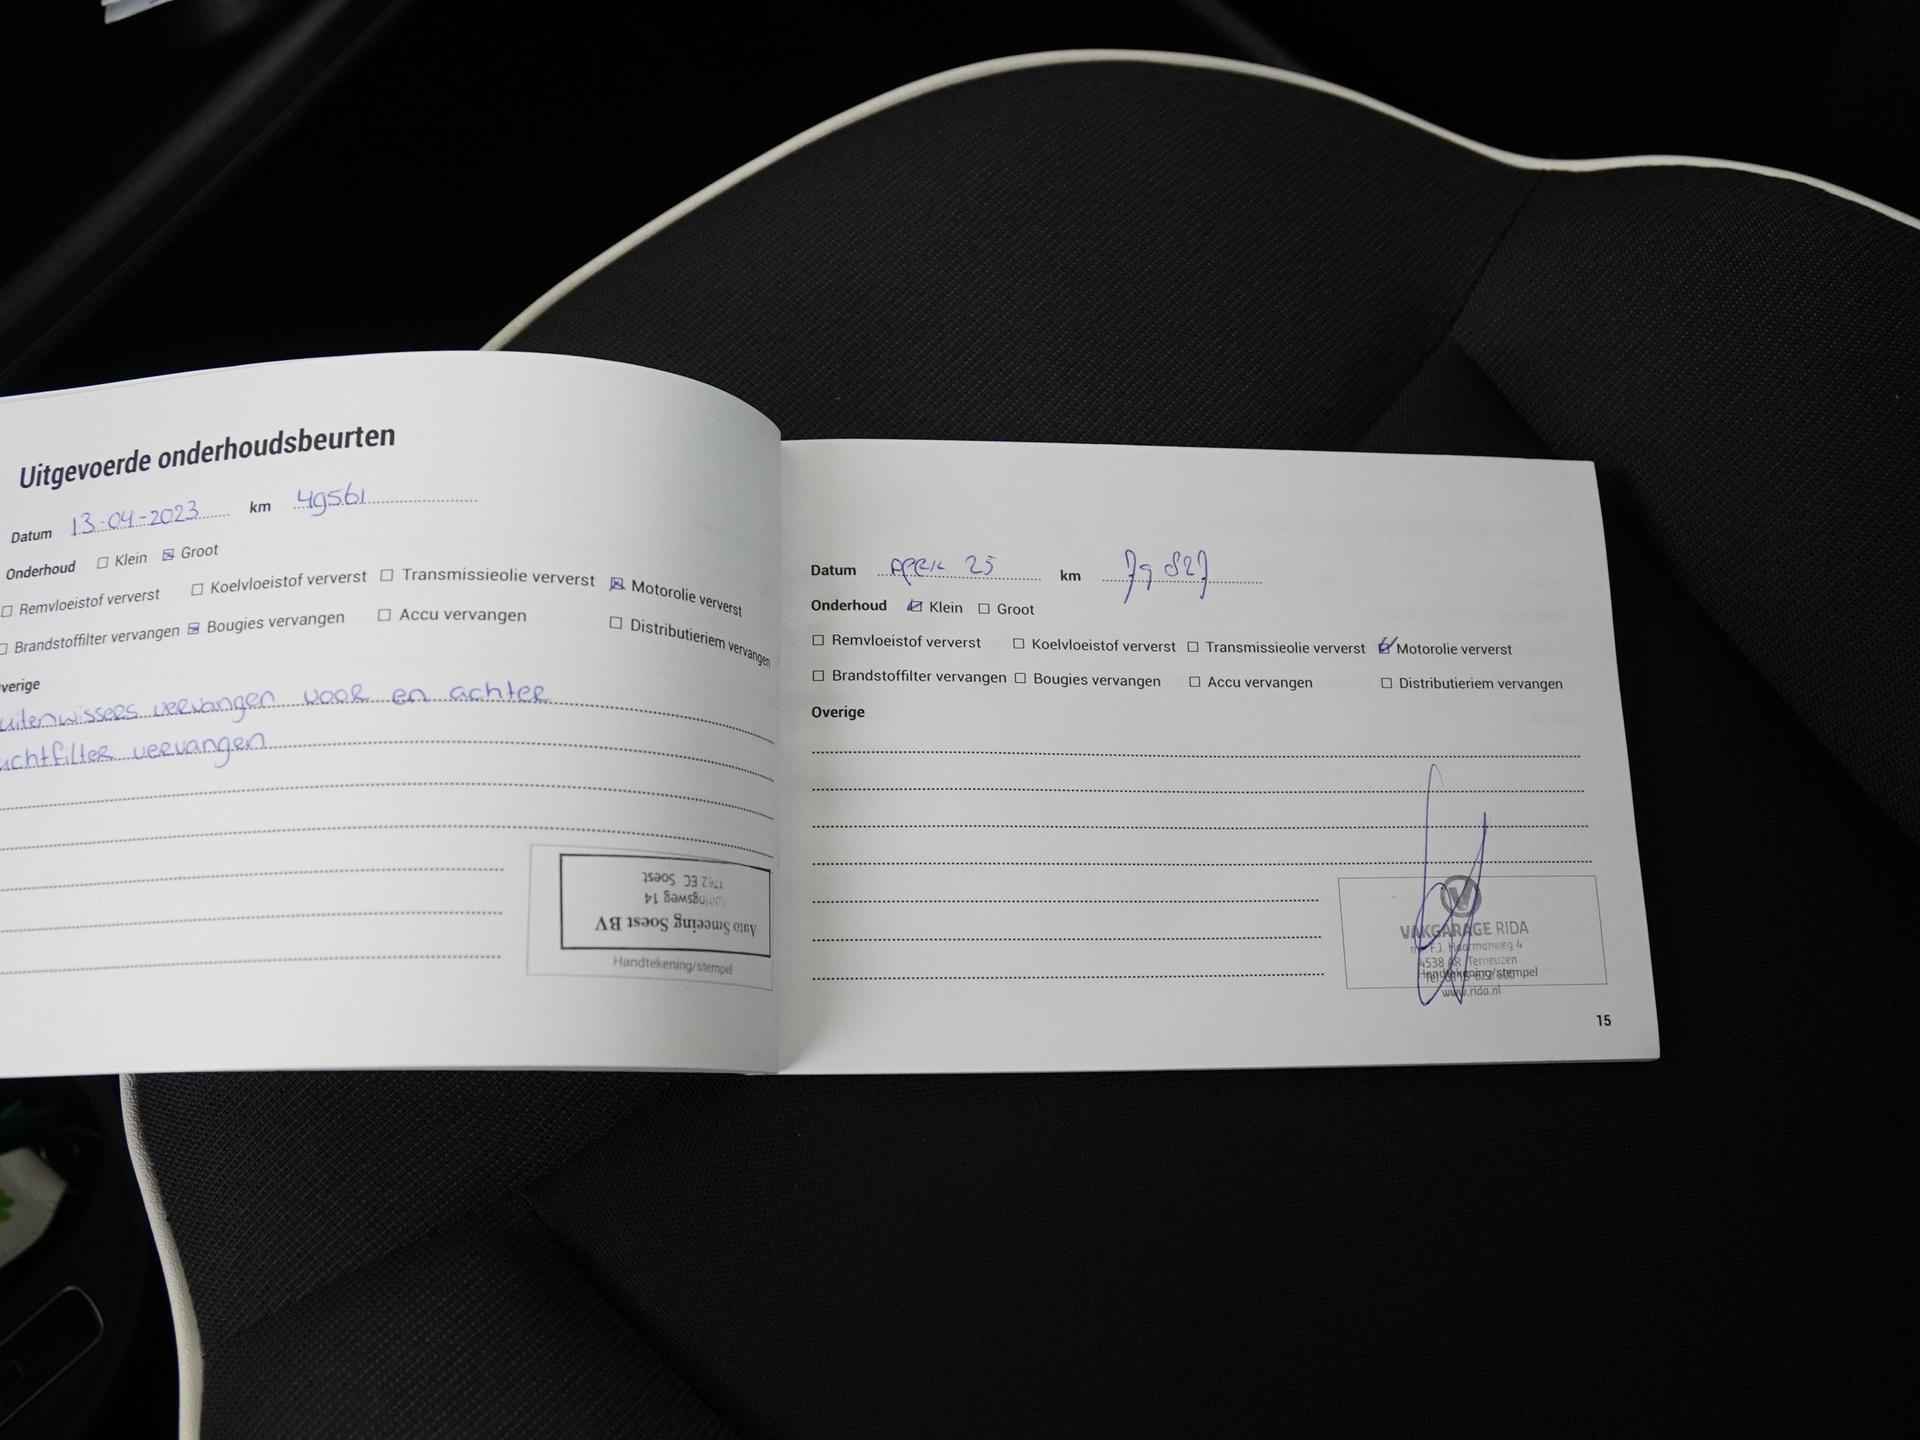 Uitgevoerde onderhoudsbeurten
Datum 13-04-2023 km 49561
Onderhoud ☐ Klein ☒ Groot
☐ Remvloeistof ververst ☐ Koelvloeistof ververst ☐ Transmissieolie ververst ☒ Motorolie ververst
☐ Brandstoffilter vervangen ☒ Bougies vervangen ☐ Accu vervangen ☐ Distributieriem vervangen
verige
uitenwissers vervangen voor en achter
uchtfilter vervangen
Auto Smeeing Soest BV
EC Soest
Handtekening/stempel
Datum April 25 km 79 827
Onderhoud ☒ Klein ☐ Groot
☐ Remvloeistof ververst ☐ Koelvloeistof ververst ☐ Transmissieolie ververst ☒ Motorolie ververst
☐ Brandstoffilter vervangen ☐ Bougies vervangen ☐ Accu vervangen ☐ Distributieriem vervangen
Overige
VAKGARAGE RIDA
4538 AR Terneuzen
Handtekening/stempel
www.rida.nl
15